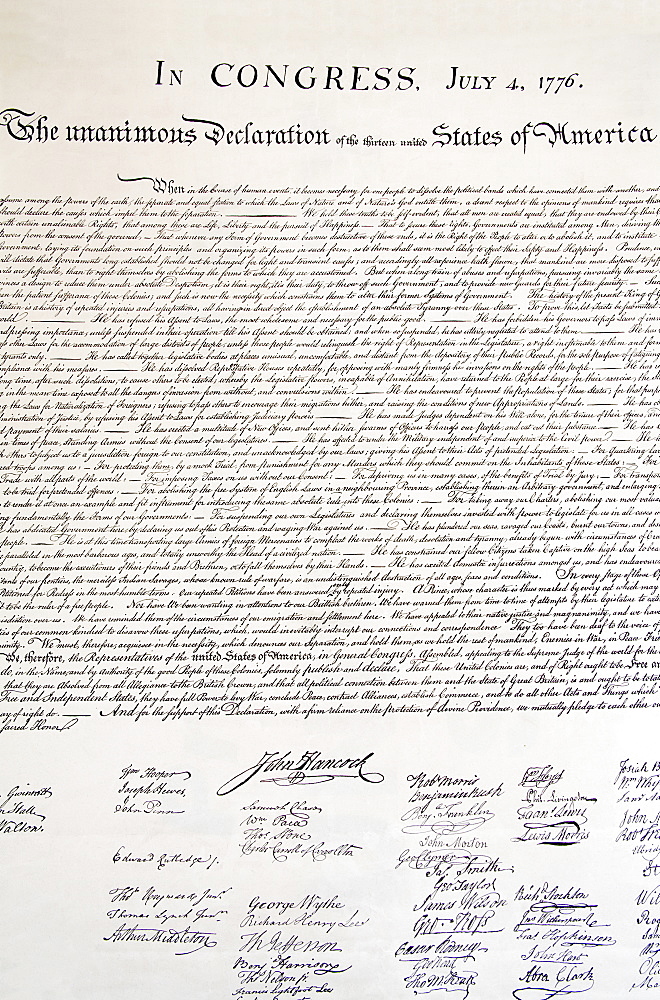 IN CONGRESS, JULY 4, 1776.
The unanimous Declaration of the thirteen united States of America
When in the Course of human events, it becomes necessary for one people to dissolve the political bands which have connected them with another, and
assume among the powers of the earth, the separate and equal station to which the Laws of Nature and of Nature's God entitle them, a decent respect to the opinions of mankind requires that
should declare the causes which impel them to the separation. — We hold these truths to be self-evident, that all men are created equal, that they are endowed by their
with certain unalienable Rights, that among these are Life, Liberty and the pursuit of Happiness. — That to secure these rights, Governments are instituted among Men, deriving
powers from the consent of the governed, — That whenever any Form of Government becomes destructive of these ends, it is the Right of the People to alter or to abolish it, and to institute
Government, laying its foundation on such principles and organizing its powers in such form, as to them shall seem most likely to effect their Safety and Happiness. Prudence,
will dictate that Governments long established should not be changed for light and transient causes; and accordingly all experience hath shewn, that mankind are more disposed to
evils are sufferable, than to right themselves by abolishing the forms to which they are accustomed. But when a long train of abuses and usurpations, pursuing invariably the same
evinces a design to reduce them under absolute Despotism, it is their right, it is their duty, to throw off such Government, and to provide new Guards for their future security. —
been the patient sufferance of these Colonies; and such is now the necessity which constrains them to alter their former Systems of Government. The history of the present King of
Britain is a history of repeated injuries and usurpations, all having in direct object the establishment of an absolute Tyranny over these States. To prove this, let Facts be
world. — He has refused his Assent to Laws, the most wholesome and necessary for the public good. — He has forbidden his Governors to pass Laws of
and pressing importance, unless suspended in their operation till his Assent should be obtained; and when so suspended, he has utterly neglected to attend to them. — He has
pass other Laws for the accommodation of large districts of people, unless those people would relinquish the right of Representation in the Legislature, a right inestimable to them and
tyrants only. — He has called together legislative bodies at places unusual, uncomfortable, and distant from the depository of their public Records, for the sole purpose of
compliance with his measures. — He has dissolved Representative Houses repeatedly, for opposing with manly firmness his invasions on the rights of the people. — He has
long time, after such dissolutions, to cause others to be elected; whereby the Legislative powers, incapable of Annihilation, have returned to the People at large for their exercise; the
in the mean time exposed to all the dangers of invasion from without, and convulsions within. — He has endeavoured to prevent the population of these States; for that
the Laws for Naturalization of Foreigners; refusing to pass others to encourage their migrations hither, and raising the conditions of new Appropriations of Lands. — He has
Administration of Justice, by refusing his Assent to Laws for establishing Judiciary powers. — He has made Judges dependent on his Will alone, for the tenure of their offices, and
payment of their salaries. — He has erected a multitude of New Offices, and sent hither swarms of Officers to harrass our people, and eat out their substance. — He has
in times of peace, Standing Armies without the Consent of our legislatures. — He has affected to render the Military independent of and superior to the Civil power. — He
others to subject us to a jurisdiction foreign to our constitution, and unacknowledged by our laws; giving his Assent to their Acts of pretended Legislation: — For Quartering
armed troops among us: — For protecting them, by a mock Trial, from punishment for any Murders which they should commit on the Inhabitants of these States: — For
Trade with all parts of the world: — For imposing Taxes on us without our Consent: — For depriving us in many cases, of the benefits of Trial by Jury: — For
to be tried for pretended offences: — For abolishing the free System of English Laws in a neighbouring Province, establishing therein an Arbitrary government, and enlarging
to render it at once an example and fit instrument for introducing the same absolute rule into these Colonies: — For taking away our Charters, abolishing our most
fundamentally the Forms of our Governments: — For suspending our own Legislatures, and declaring themselves invested with power to legislate for us in all cases
has abdicated Government here, by declaring us out of his Protection and waging War against us. — He has plundered our seas, ravaged our Coasts, burnt our towns, and
people. — He is at this time transporting large Armies of foreign Mercenaries to compleat the works of death, desolation and tyranny, already begun with circumstances of
paralleled in the most barbarous ages, and totally unworthy the Head of a civilized nation. — He has constrained our fellow Citizens taken Captive on the high Seas to
Country, to become the executioners of their friends and Brethren, or to fall themselves by their Hands. — He has excited domestic insurrections amongst us, and has
of our frontiers, the merciless Indian Savages, whose known rule of warfare, is an undistinguished destruction of all ages, sexes and conditions. In every stage of these
Petitioned for Redress in the most humble terms: Our repeated Petitions have been answered by repeated injury. A Prince, whose character is thus marked by every act which may
to be the ruler of a free people. Nor have We been wanting in attentions to our Brittish brethren. We have warned them from time to time of attempts by their legislature to
jurisdiction over us. We have reminded them of the circumstances of our emigration and settlement here. We have appealed to their native justice and magnanimity, and we have
ties of our common kindred to disavow these usurpations, which, would inevitably interrupt our connections and correspondence. They too have been deaf to the voice of
We must, therefore, acquiesce in the necessity, which denounces our Separation, and hold them, as we hold the rest of mankind, Enemies in War, in Peace
We, therefore, the Representatives of the united States of America, in General Congress, Assembled, appealing to the Supreme Judge of the world for the
do, in the Name, and by Authority of the good People of these Colonies, solemnly publish and declare, That these United Colonies are, and of Right ought to be Free
that they are Absolved from all Allegiance to the British Crown, and that all political connection between them and the State of Great Britain, is and ought to be
Free and Independent States, they have full Power to levy War, conclude Peace, contract Alliances, establish Commerce, and to do all other Acts and Things which
may of right do. — And for the support of this Declaration, with a firm reliance on the protection of divine Providence, we mutually pledge to each other
sacred Honor.
John Hancock
Gwinnett
Hall
Walton.
Wm Hooper
Joseph Hewes,
John Penn
Edward Rutledge /.
Thos Heyward Junr.
Thomas Lynch Junr.
Arthur Middleton
Samuel Chase
Wm Paca
Thos Stone
Charles Carroll of Carrollton
George Wythe
Richard Henry Lee
Th Jefferson
Benj Harrison
Thos Nelson jr.
Francis Lightfoot Lee
Robt Morris
Benjamin Rush
Benj. Franklin
John Morton
Geo Clymer
Jas. Smith
Geo. Taylor
James Wilson
Geo. Ross
Caesar Rodney
Geo Read
Tho M:Kean
Wm Floyd
Phil. Livingston
Frans. Lewis
Lewis Morris
Richd. Stockton
Jno Witherspoon
Fras. Hopkinson
John Hart
Abra Clark
Josiah B
Wm Wh
Saml
John
Robt